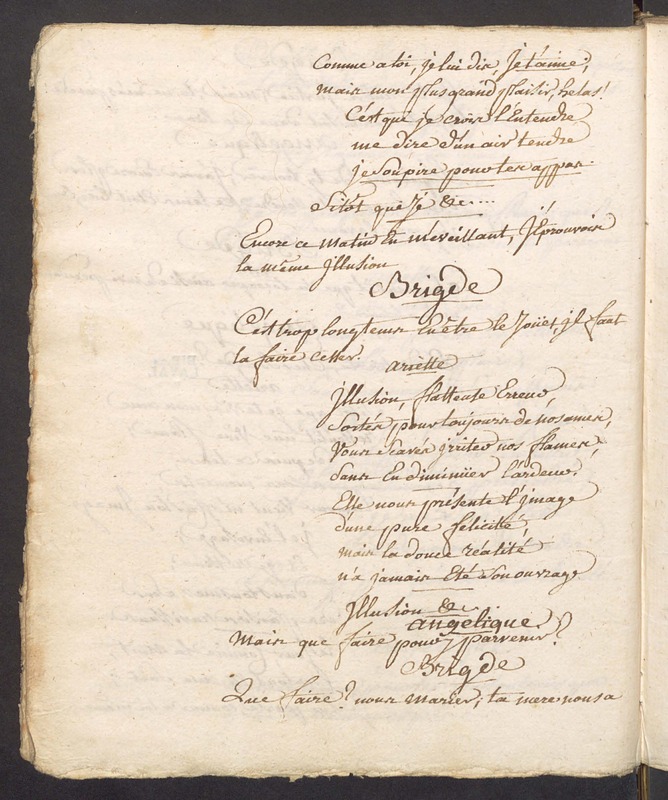 Comme a toi, je lui dis Je t'aime,
mais mon plus grand plaisir, helas!
C'est que je crois l'Entendre
me dire d'un air tendre
je soupire pour tes appas.
Sitôt que j'é &c....
Encore ce matin En m'eveillant, J'éprouvois
la même Jllusion
Brigde
C'est trop longtems En être le Jouët, jl faut
la faire cesser.
ariette
Jllusion, flatteuse Erreur,
Sortés pour toujours de nos ames,
Vous sçavés jrriter nos flames,
sans En diminüer l'ardeur.
Elle nous présente l'jmage
d'une pure felicité,
mais la douce réalité
n'a jamais Eté son ouvrage
Jllusion &c.
angelique
Mais que faire pour y parvenir?
Brigde
Que faire? nous marier; ta mere nous a